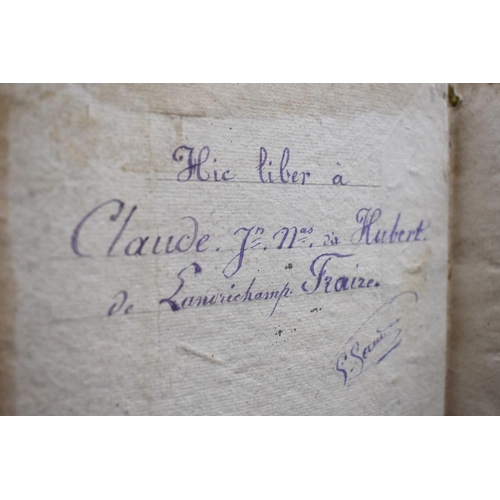 Hic liber à
Claude. Jn. Nas. dis Hubert.
de Landrichamp. Fraize.